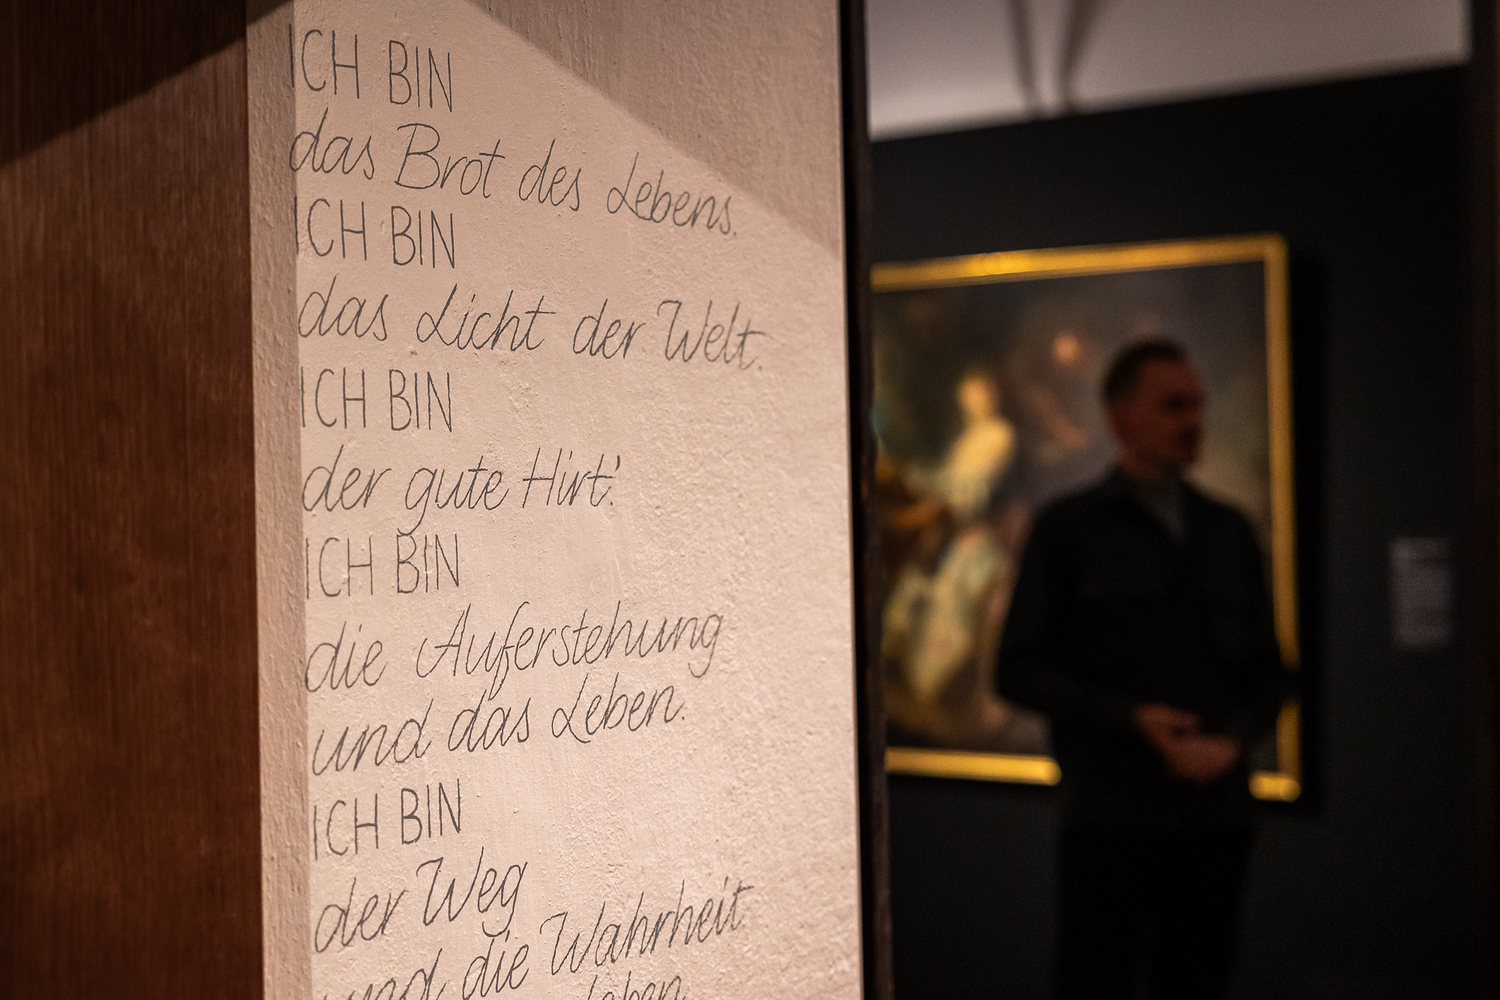 ICH BIN
das Brot des Lebens.
ICH BIN
das Licht der Welt.
ICH BIN
der gute Hirt.
ICH BIN
die Auferstehung
und das Leben.
ICH BIN
der Weg
und die Wahrheit
Leben.